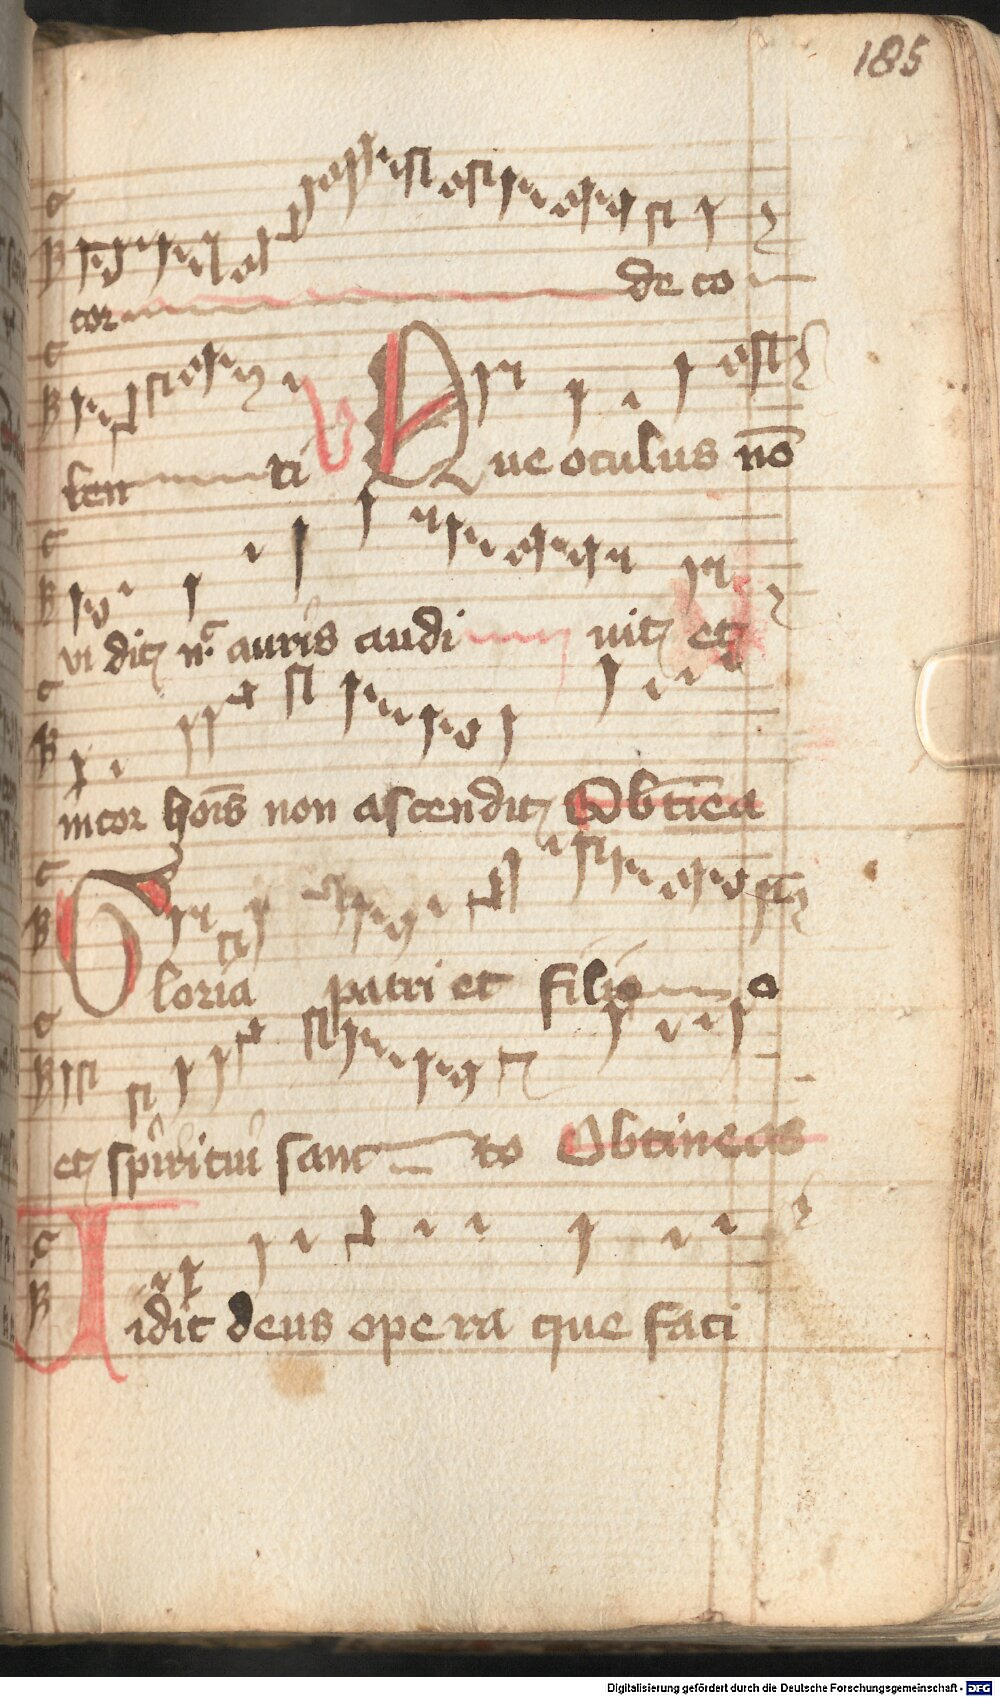 185
cor de co
ten ti V Que oculus nō
vi dit nc auris audi uit et
in cor hoīs non ascendit Obtīea
Gloria patri et filio o
et spiritui sanc to Obtineas
Vidit deus opera que faci
Digitalisierung gefördert durch die Deutsche Forschungsgemeinschaft - DFG